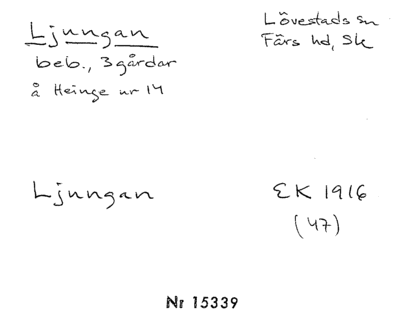 Ljungan
Lövestads sn
beb., 3 gårdar
Färs hd, Sk
å Heinge nr 14
Ljungan
EK 1916
(47)
Nr 15339